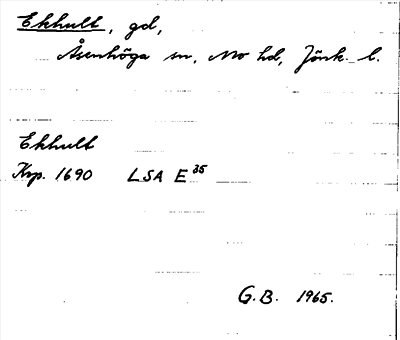 Ekhult, gd,
Åsenhöga sn, Mo hd, Jönk. l.
Ekhult
Krp. 1690 LSA E 35
G.B. 1965.